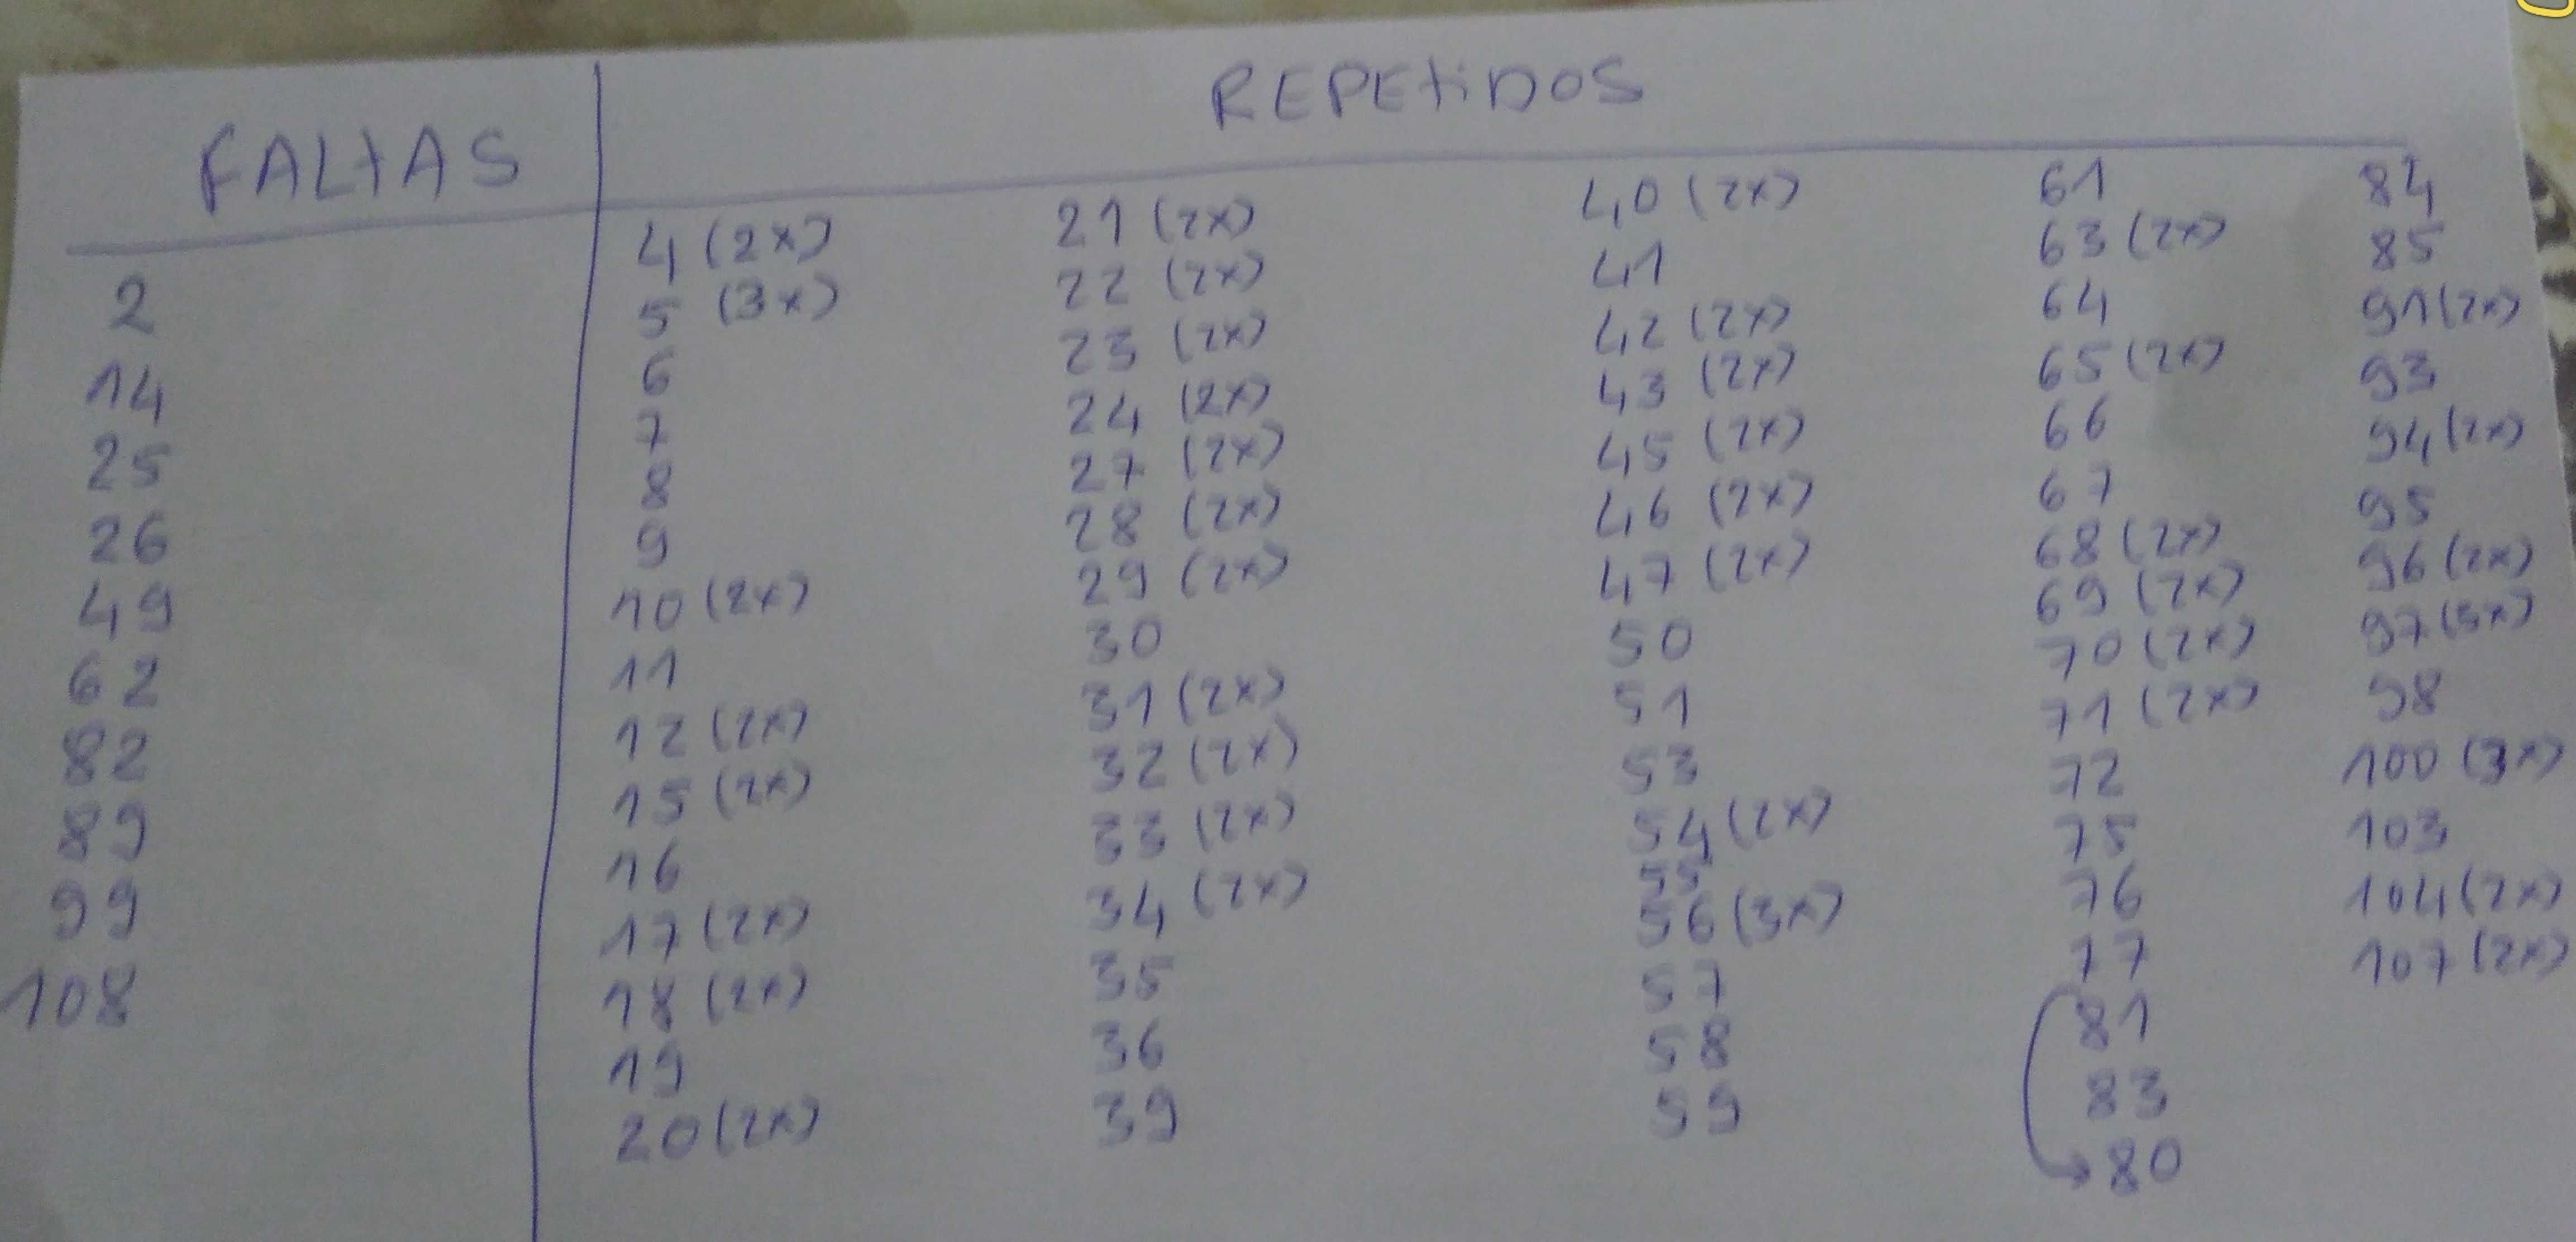 FALTAS
2
14
25
26
49
62
82
89
99
108
REPETIDOS
4 (2x)
5 (3x)
6
7
8
9
10 (2x)
11
12 (2x)
15 (2x)
16
17 (2x)
18 (2x)
19
20 (2x)
21 (2x)
22 (2x)
23 (2x)
24 (2x)
27 (2x)
28 (2x)
29 (2x)
30
31 (2x)
32 (2x)
33 (2x)
34 (2x)
35
36
39
40 (2x)
41
42 (2x)
43 (2x)
45 (2x)
46 (2x)
47 (2x)
50
51
53
54 (2x)
55
56 (3x)
57
58
59
61
63 (2x)
64
65 (2x)
66
67
68 (2x)
69 (2x)
70 (2x)
71 (2x)
72
75
76
77
81
83
80
84
85
91 (2x)
93
94 (2x)
95
96 (2x)
97 (3x)
98
100 (3x)
103
104 (2x)
107 (2x)